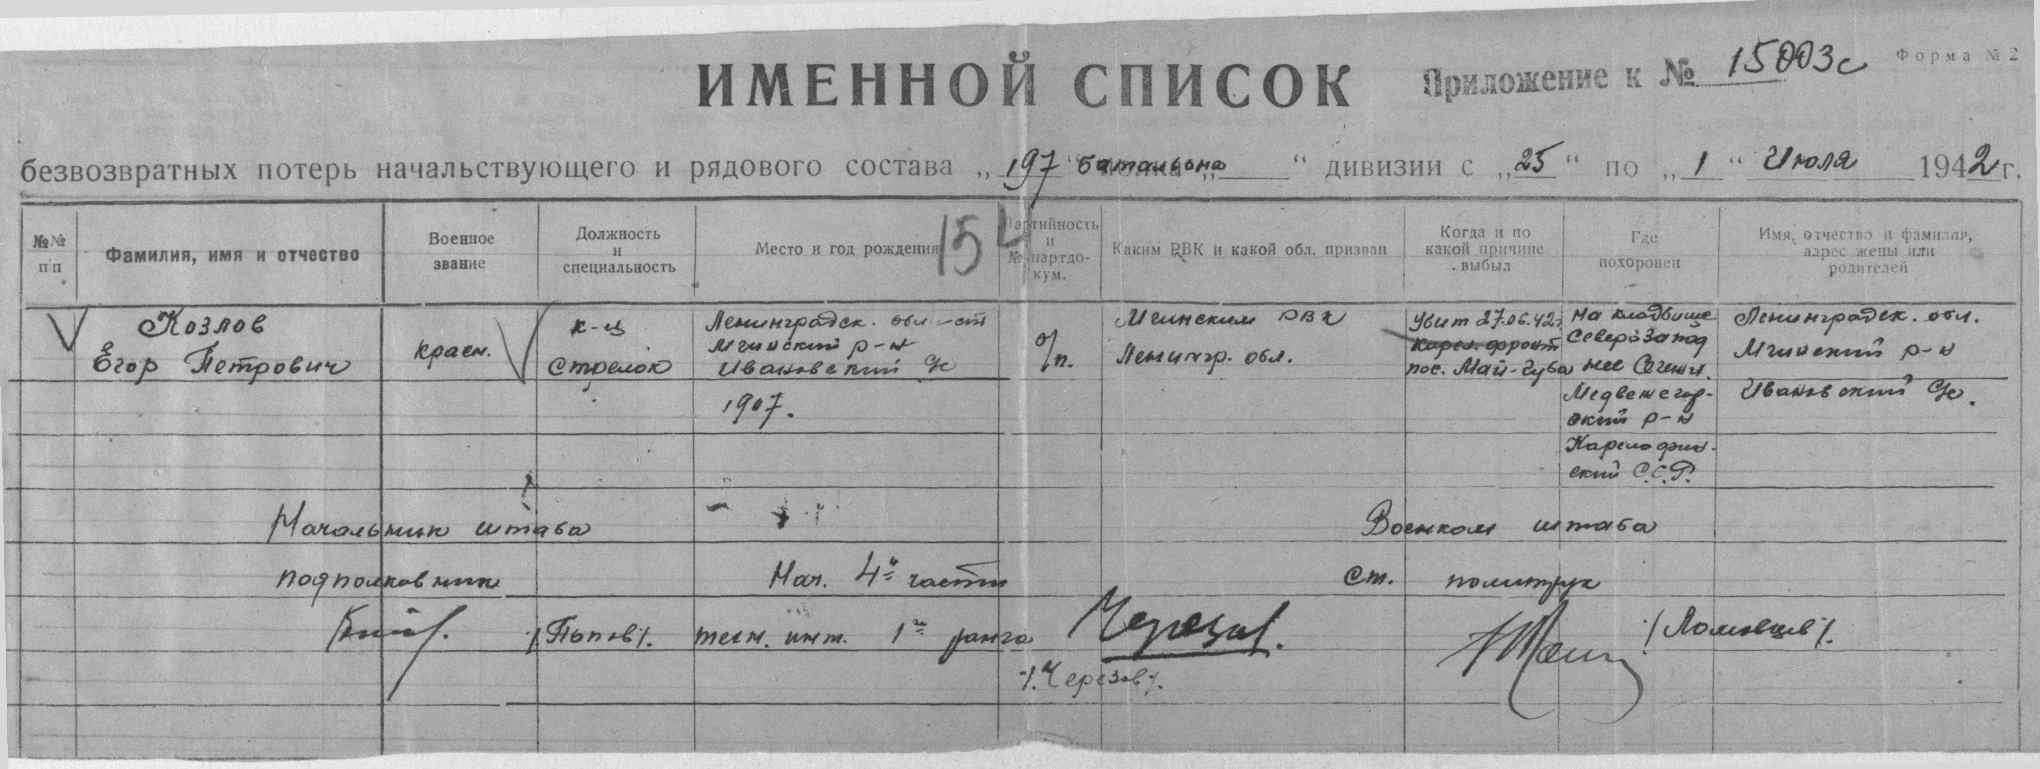 ИМЕННОЙ СПИСОК
Приложение к № 15003с
Форма № 2
безвозвратных потерь начальствующего и рядового состава „197 батальона „ “ дивизии с „25“ по „1“ Июля 1942 г.
№№ п/п
Фамилия, имя и отчество
Военное звание
Должность и специальность
Место и год рождения
154
Партийность и № партдокум.
Каким РВК и какой обл. призван
Когда и по какой причине выбыл
Где похоронен
Имя, отчество и фамилия, адрес жены или родителей
Козлов
Егор Петрович
красн.
к-ц
стрелок
Ленинградск. област
Мгинский р-н
Ивановский с/с
1907.
б/п.
Мгинским РВК
Ленингр. обл.
Убит 27.06.42г.
Карел. фронт
пос. Май-Губа
На кладбище
Северозапад
нее
Медвежегор-
ский р-н
Карелофин-
ский С.С.Р.
Ленинградск. обл.
Мгинский р-н
Ивановский с/с.
Начальник штаба
Военком штаба
подполковник
Нач. 4й части
ст. политрук
/Попов/.
техн. инт. 1го ранга
/Ломовцев/.
/Черезов/.